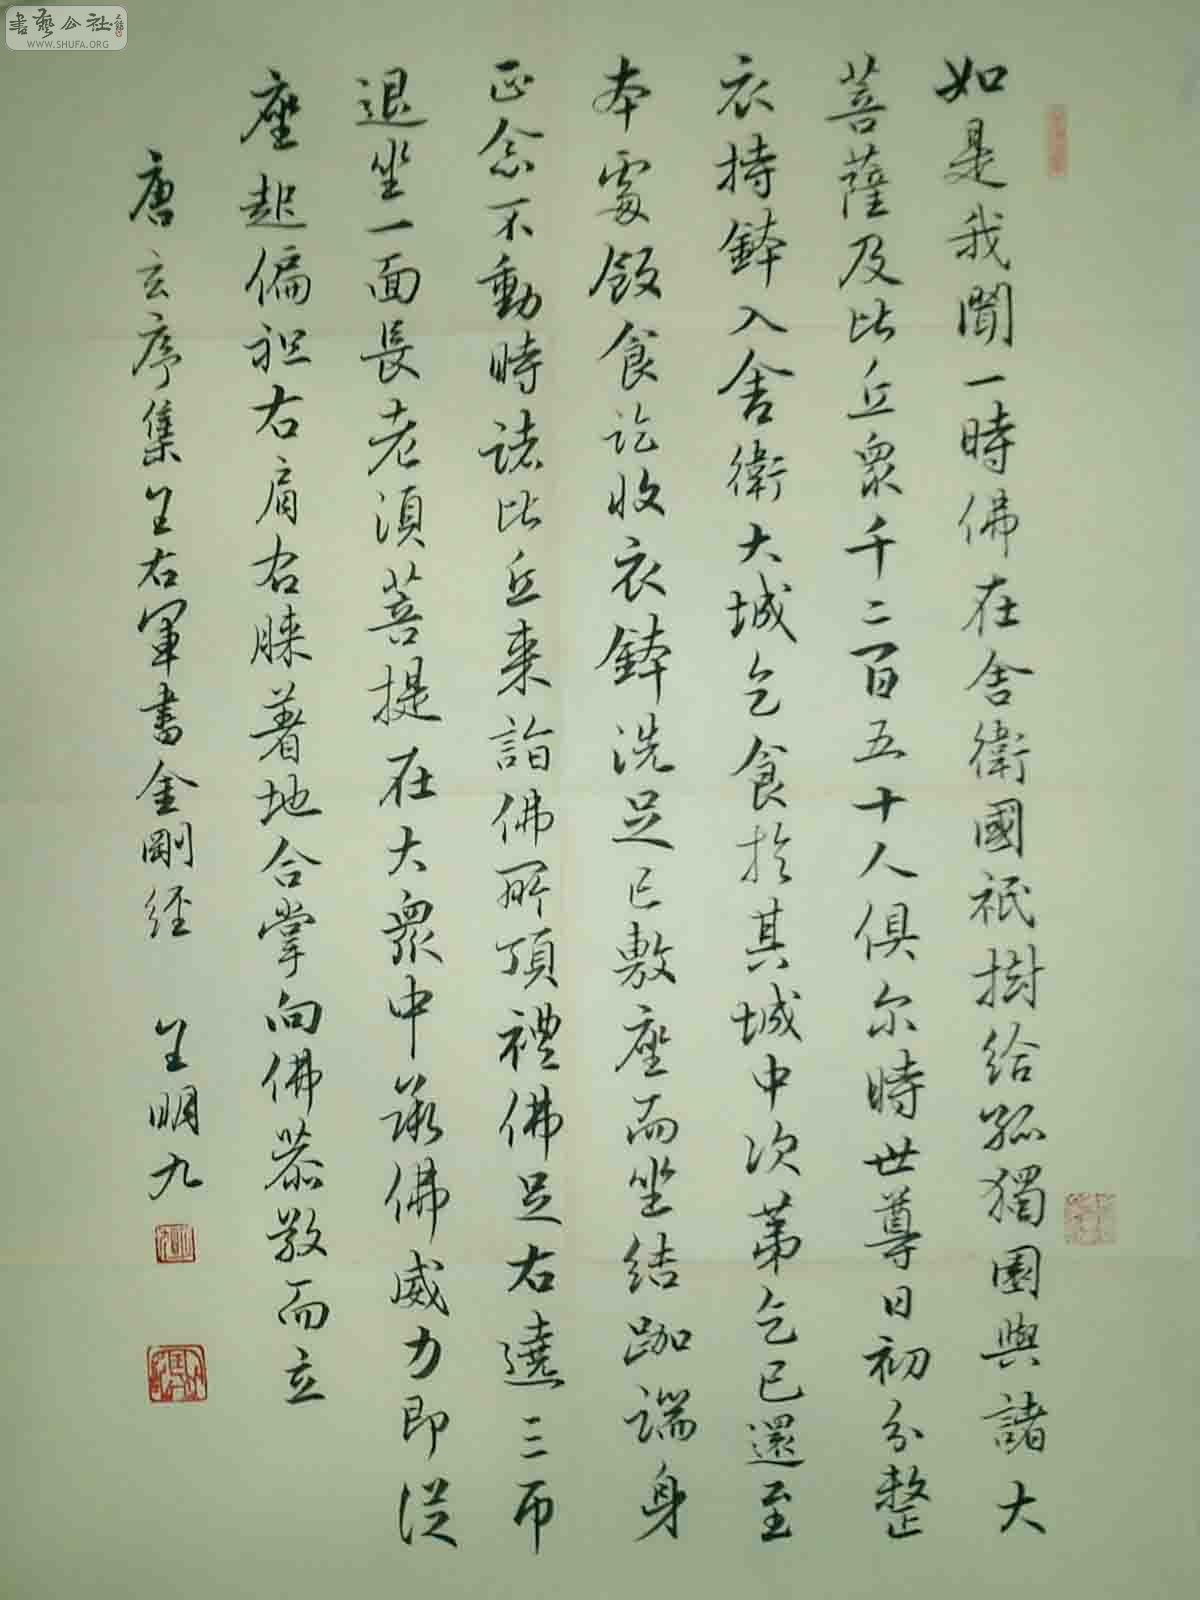 如是我聞一時佛在舍衛國祇樹給孤獨園與諸大
菩薩及比丘眾千二百五十人俱尔時世尊日初分整
衣持鉢入舍衛大城乞食於其城中次第乞已還至
本處飯食訖收衣鉢洗足已敷座而坐結跏端身
正念不動時諸比丘來詣佛所頂禮佛足右遶三帀
退坐一面長老須菩提在大眾中承佛威力即從
座起偏袒右肩右膝著地合掌向佛恭敬而立
唐玄序集王右軍書金剛經 王明九
書藝公社
WWW.SHUFA.ORG